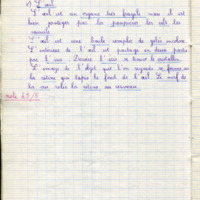 L'œil
L'œil est un organe très fragile mais il est
bien protégée par les paupières les cils les
sourcils
L'œil est une boule remplie de gelée incolore
L'intérieur de l'œil est partagé en deux parties
par l'iris. Derrière l'iris se trouve le cristallin.
L'image de l'objet que l'on regarde se forme sur
la rétine qui tapisse le fond de l'œil. Le nerf de
la vue relie la rétine au cerveau.